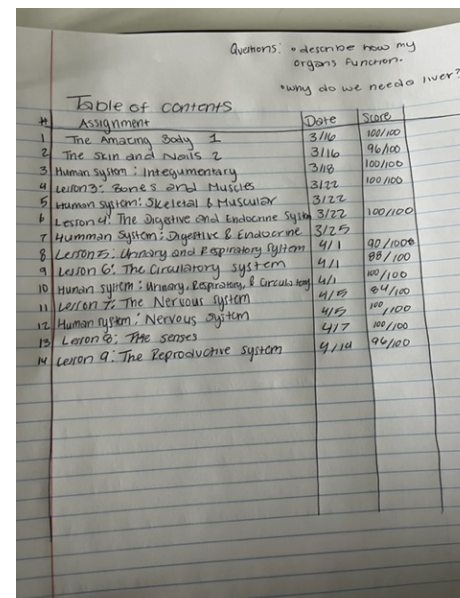 Questions: • describe how my
organs function.
• why do we need a liver?
Table of contents
# Assignment Date Score
1 The Amazing Body 1 3/16 100/100
2 The Skin and Nails 2 3/16 96/100
3 Human System: Integumentary 3/18 100/100
4 Lesson 3: Bones and Muscles 3/22 100/100
5 Human system: Skeletal & Muscular 3/22
6 Lesson 4: The Digestive and Endocrine System 3/22 100/100
7 Humman System: Digestive & Endocrine 3/25
8 Lesson 5: Urinary and Respiratory System 4/1 90/100
9 Lesson 6: The Circulatory system 4/1 88/100
10 Human system: Urinary, Respiratory, & Circulatory 4/1 100/100
11 Lesson 7: The Nervous system 4/5 84/100
12 Human system: Nervous System 4/5 100/100
13 Lesson 8: The senses 4/7 100/100
14 Lesson 9: The Reproductive system 4/14 96/100